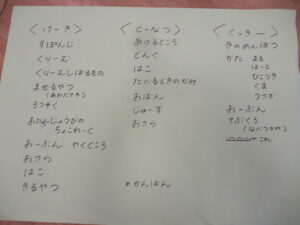 <けーき>
すぽんじ
くりーむ
くりーむしぼるもの
まぜるやつ
(あわだてき)
ろうそく
おたんじょうびの
ちょこれーと
おーぶん やくところ
おさら
はこ
きるやつ
<どーなつ>
あげるところ
とんぐ
はこ
たべるときのかみ
おぼん
じゅーす
おさら
*かんばん
<くっきー>
きのめんぼう
かた まる
はーと
ひこうき
くま
うさぎ
おーぶん
てぶくろ
(なべつかみ)
これ